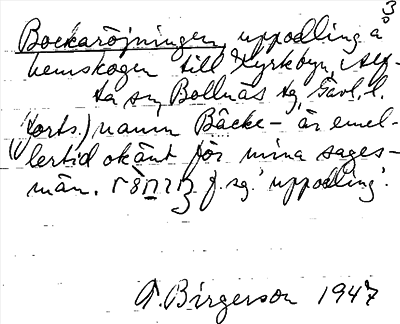 3
Bockaröjningen, uppodling å
hemskogen till Kyrkbyn, Alf-
ta sn, Bollnäs tg, Gävl. l.
(forts.) namn Bäcke- är emel-
lertid okänt för mina sages-
män. f. sg. 'uppodling'.
A. Birgerson 1947